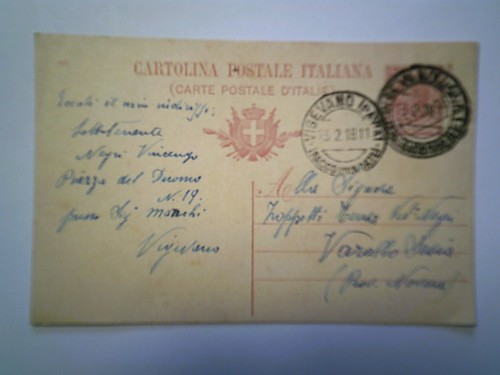 CARTOLINA POSTALE ITALIANA
(CARTE POSTALE D'ITALIE)
VIGEVANO (PAVIA)
Eccoti il mio indirizzo:
Sottotenente
Negri Vincenzo
Piazza del Duomo
N. 19.
presso Sig
Vigevano
Alla Signora
Zoppetti
Varallo Sesia
(Prov. Novara)